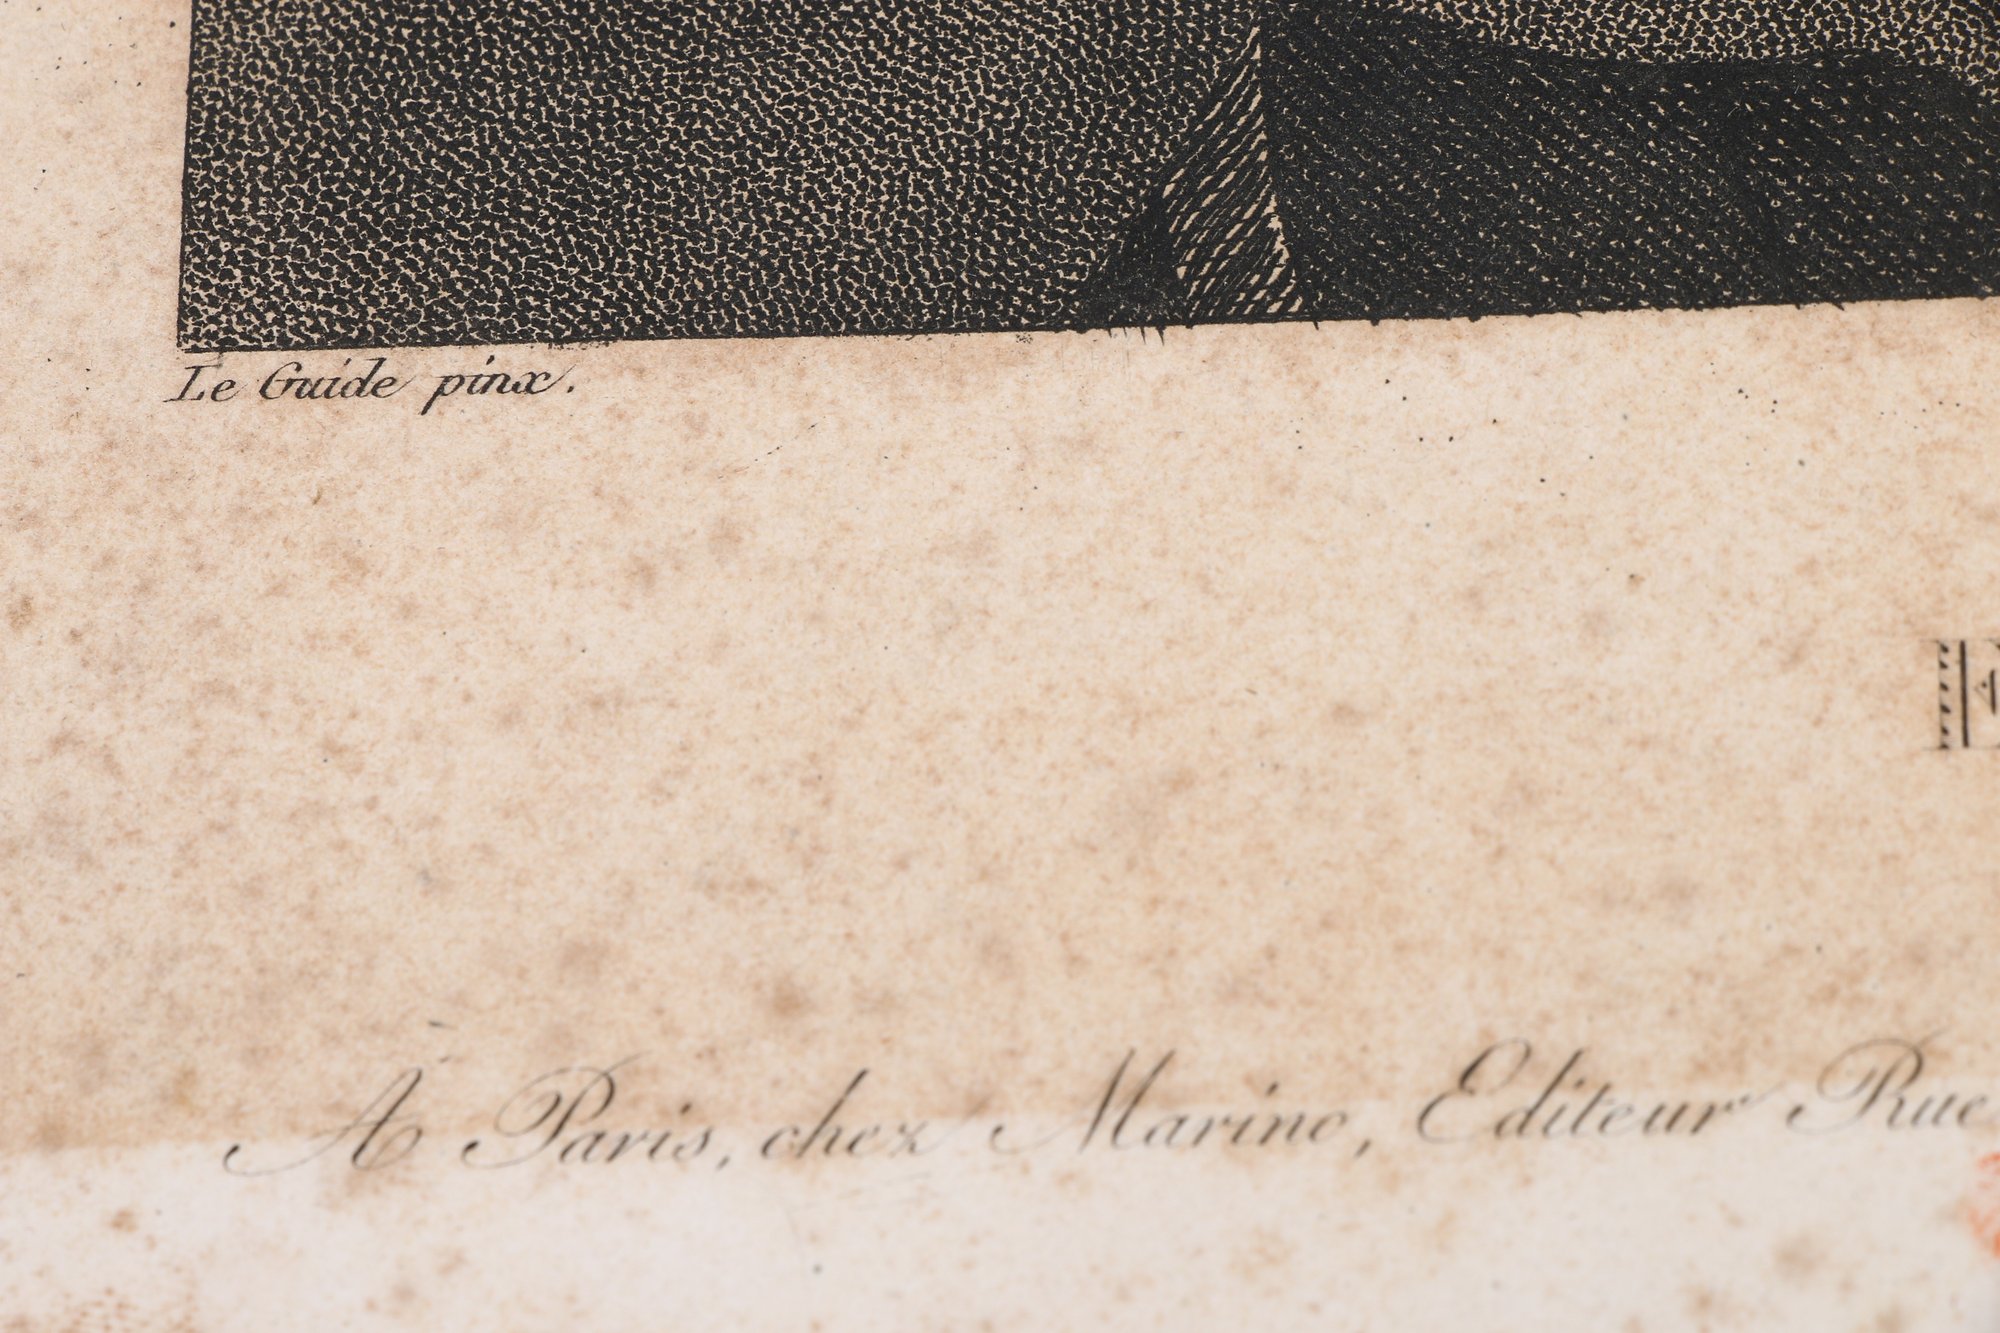 Le Guide pinx.
E
A Paris, chez Marino, Editeur Rue